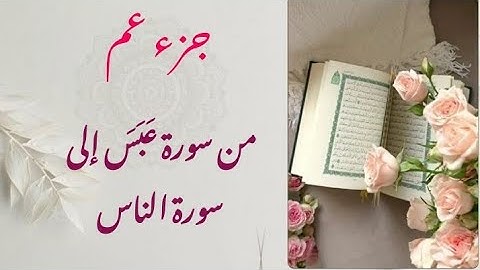 جزء عم
من سورة عَبَسَ إلى
سورة الناس